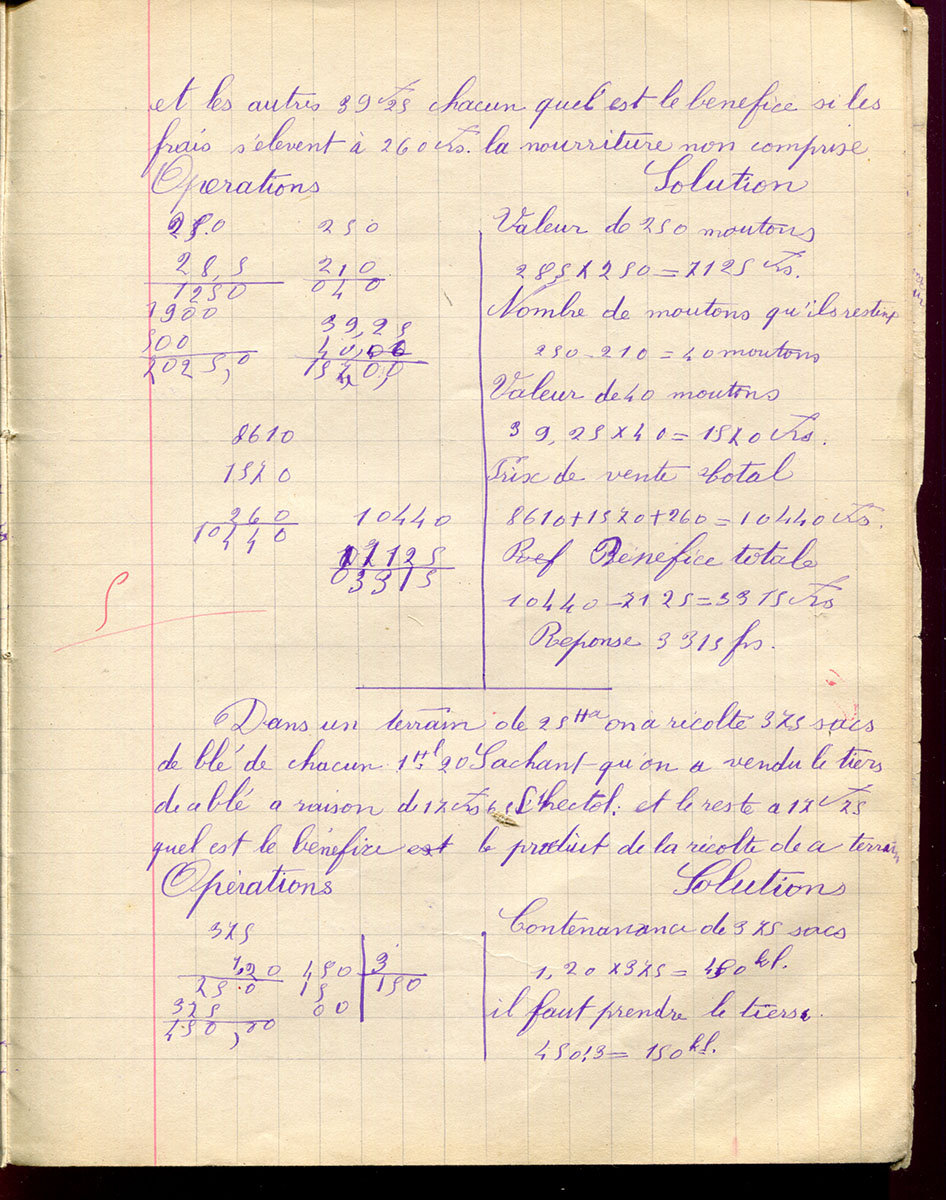 et les autres 39 Frs 25 chacun quel est le benefice si les
frais s'élevent à 260 Frs. la nourriture non comprise
Opérations
Solution
250
28,5
1250
1900
500
2025,0
250
210
040
39,25
40,00
1570,00
8610
1570
260
10440
10440
7125
03315
Valeur de 250 moutons
285 x 250 = 7125 Frs.
Nombre de moutons qu'ils
250 - 210 = 40 moutons
Valeur de 40 moutons
39,25 x 40 = 1570 Frs.
Prix de vente total
8610 + 1570 + 260 = 10440 Frs.
Benefice totale
10440 - 7125 = 3315 Frs
Reponse 3315 frs.
Dans un terrain de 25 Ha on a récolté 375 sacs
de blé de chacun 1 Hl 20 Sachant qu'on a vendu le tiers
de a blé a raison de 17 Frs l'hectol. et le reste a 17 Frs 25
quel est le bénéfice est le produit de la récolte de a terrain
Opérations
Solutions
375
1,20
750 0
375
450,00
450
15
00
3
150
Contenanance de 375 sacs
1,20 x 375 = 450 hl.
il faut prendre le tiers.
450:3 = 150 hl.